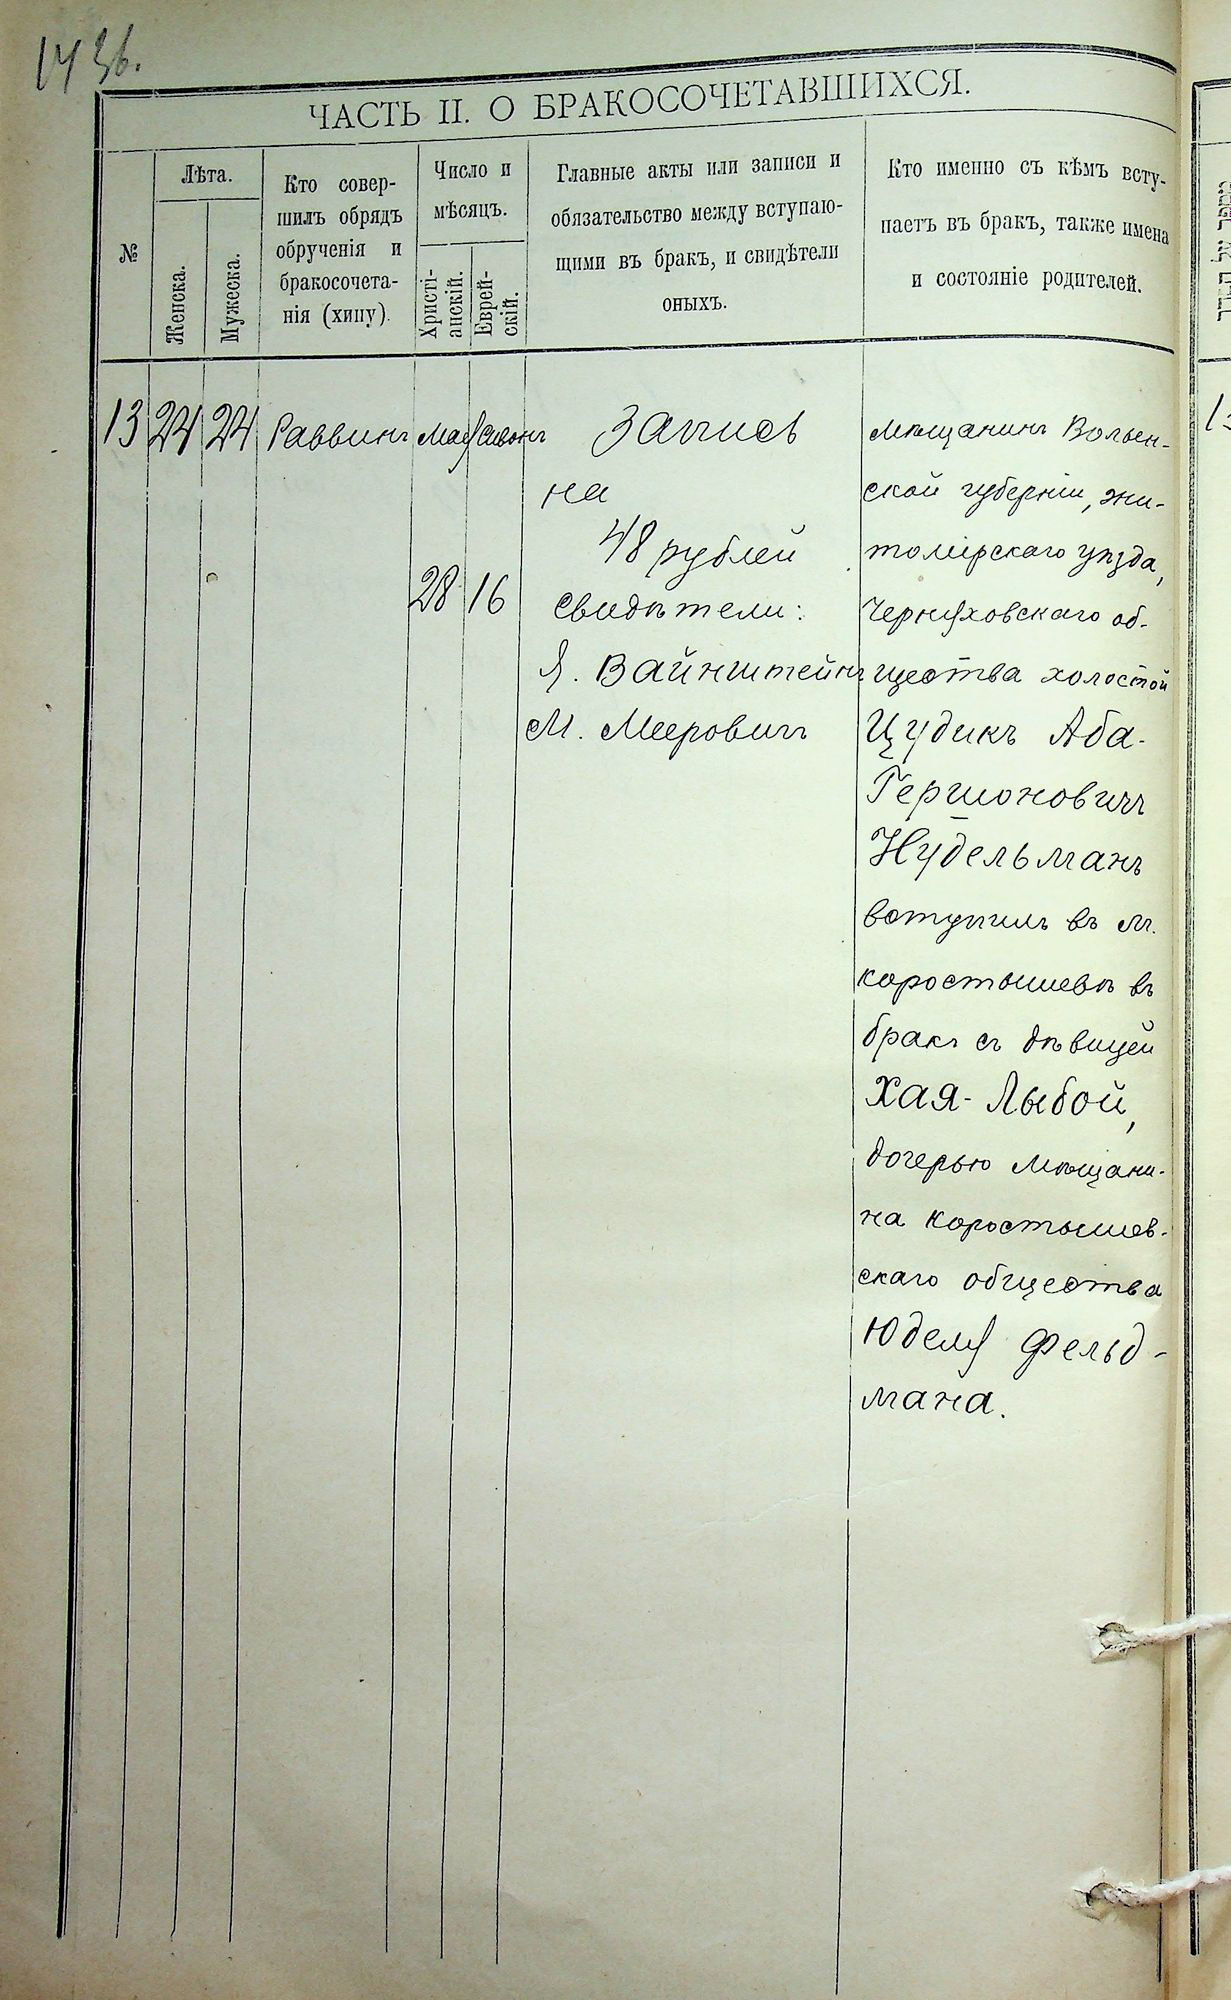 143б.
ЧАСТЬ II. О БРАКОСОЧЕТАВШИХСЯ.
№
Лѣта.
Женска.
Мужеска.
Кто совер-
шилъ обрядъ
обрученія и
бракосочета-
нія (хипу).
Число и
мѣсяцъ.
Христі-
анскій.
Еврей-
скій.
Главные акты или записи и
обязательство между вступаю-
щими въ бракъ, и свидѣтели
оныхъ.
Кто именно съ кѣмъ всту-
паетъ въ бракъ, также имена
и состояніе родителей.
13
24
24
Раввинъ
Мая
28
Сивонъ
16
Запись
на
48 рублей
свидѣтели:
Я. Вайнштейнъ
М. Мееровичъ
мѣщанинъ Волын-
ской губерніи, жи-
томірскаго уѣзда,
Черняховскаго об-
щества холостой
Цудикъ Аба-
Гершоновичъ
Нудельманъ
вступилъ въ м.
коростышевѣ въ
бракъ съ дѣвицей
Хая-Лыбой,
дочерью мѣщани-
на коростышев-
скаго общества
Юделя Фельд-
мана.